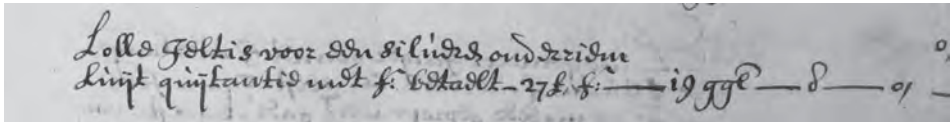 Lolle Geltis voor een silueren onderriem
luijt quijtantie met f: betaelt – 27 f. f: — 19 ggl — 8 — 0